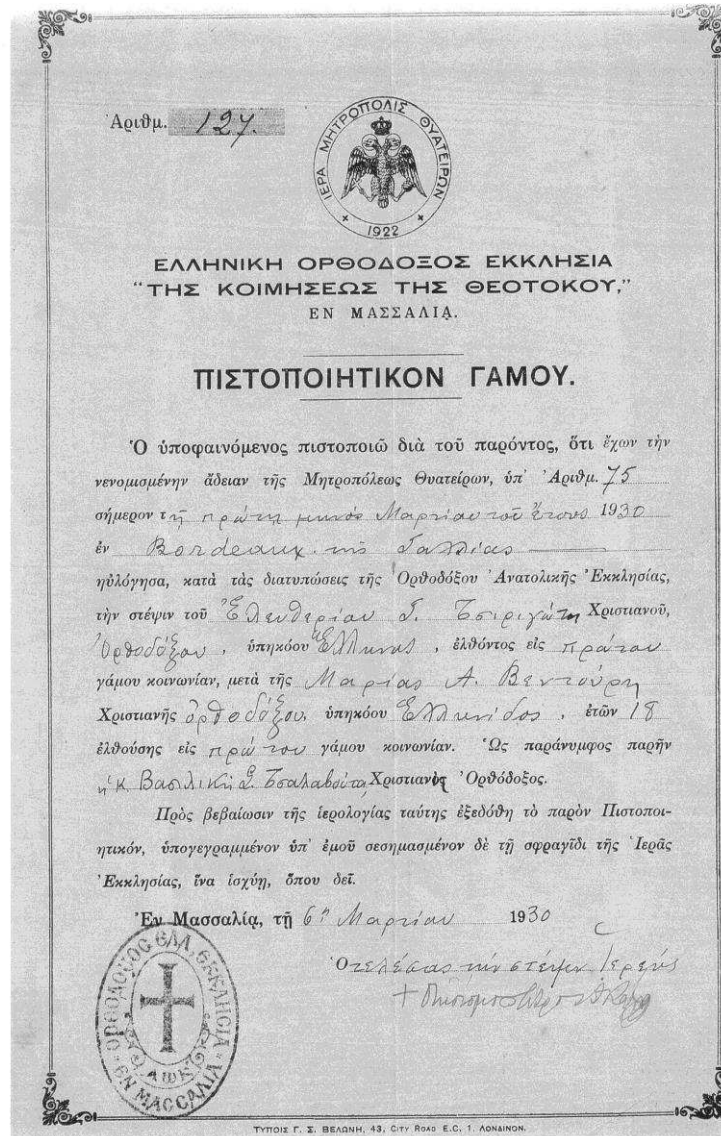 Αριθμ. 127.
ΙΕΡΑ ΜΗΤΡΟΠΟΛΙΣ ΘΥΑΤΕΙΡΩΝ
1922
ΕΛΛΗΝΙΚΗ ΟΡΘΟΔΟΞΟΣ ΕΚΚΛΗΣΙΑ
“ΤΗΣ ΚΟΙΜΗΣΕΩΣ ΤΗΣ ΘΕΟΤΟΚΟΥ,”
ΕΝ ΜΑΣΣΑΛΙᾼ.
ΠΙΣΤΟΠΟΙΗΤΙΚΟΝ ΓΑΜΟΥ.
Ὁ ὑποφαινόμενος πιστοποιῶ διὰ τοῦ παρόντος, ὅτι ἔχων τὴν
νενομισμένην ἄδειαν τῆς Μητροπόλεως Θυατείρων, ὑπ' Ἀριθμ. 75
σήμερον τῇ πρώτῃ μηνὸς Μαρτίου τοῦ ἔτους 1930
ἐν Bordeaux τῆς Γαλλίας
ηὐλόγησα, κατὰ τὰς διατυπώσεις τῆς Ὀρθοδόξου Ἀνατολικῆς Ἐκκλησίας,
τὴν στέψιν τοῦ Ἐλευθερίου Γ. Τσιριγώτη Χριστιανοῦ,
Ὀρθοδόξου, ὑπηκόου Ἕλληνος, ἐλθόντος εἰς πρώτου
γάμου κοινωνίαν, μετὰ τῆς Μαρίας Α. Βεντούρη
Χριστιανῆς ὀρθοδόξου, ὑπηκόου Ἑλληνίδος, ἐτῶν 18
ἐλθούσης εἰς πρώτου γάμου κοινωνίαν. Ὡς παράνυμφος παρῆν
ἡ κ. Βασιλική Σ. Τσαλαβούτα, Χριστιανὴ Ὀρθόδοξος.
Πρὸς βεβαίωσιν τῆς ἱερολογίας ταύτης ἐξεδόθη τὸ παρὸν Πιστοποι-
ητικόν, ὑπογεγραμμένον ὑπ' ἐμοῦ σεσημασμένον δὲ τῇ σφραγῖδι τῆς Ἱερᾶς
Ἐκκλησίας, ἵνα ἰσχύῃ, ὅπου δεῖ.
Ἐν Μασσαλίᾳ, τῇ 6ῃ Μαρτίου 1930
Ὁ τελέσας τὴν στέψιν Ἱερεύς
ΟΡΘΟΔΟΞΟC ΕΛΛ. ΕΚΚΛΗCΙΑ ΕΝ ΜΑCCΑΛΙΑ
ΑΩΚ
ΤΥΠΟΙΣ Γ. Σ. ΒΕΛΩΝΗ, 43, CITY ROAD E.C. 1. ΛΟΝΔΙΝΟΝ.